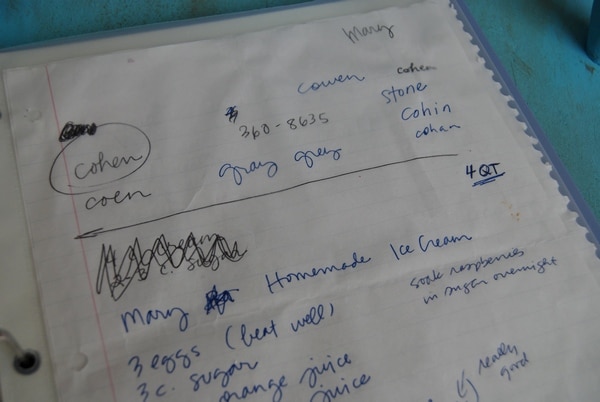 Mary
cowen
cohen
stone
360-8635
cohin
cohan
cohen
gray grey
coen
4 QT
Mary Homemade Ice Cream
soak raspberries
in sugar overnight
3 eggs (beat well)
3 c. sugar
orange juice
juice
really
good